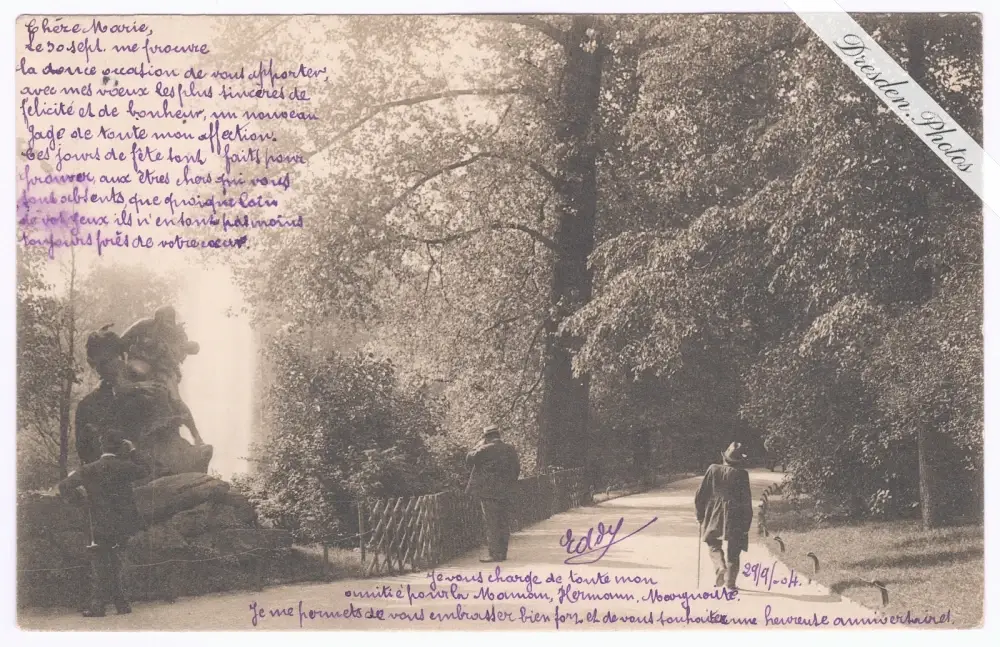 Chère Marie,
Le 30 sept. me procure
la douce occasion de vous apporter,
avec mes vœux les plus sincères de
félicité et de bonheur, un nouveau
gage de toute mon affection.
Ces jours de fête sont faits pour
prouver, aux êtres chers qui vous
sont absents, que quoique loin
de vos yeux ils n'en sont pas moins
toujours près de votre cœur.
Dresden.Photos
Eddy
29/9/-04.
Je vous charge de toute mon
amitié pour la Maman, Hermann, Marguerite.
Je me permets de vous embrasser bien fort et de vous souhaiter une heureuse anniversaire.